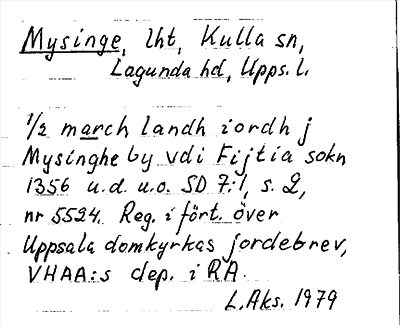 Mysinge, lht, Kulla sn,
Lagunda hd, Upps. l.
1/2 march landh iordh j
Mysinghe by vdi Fijtia sokn
1356 u.d. u.o. SD 7:1, s. 2,
nr 5524. Reg. i fört. över
Uppsala domkyrkas jordebrev,
VHAA:s dep. i RA.
L. Aks. 1979